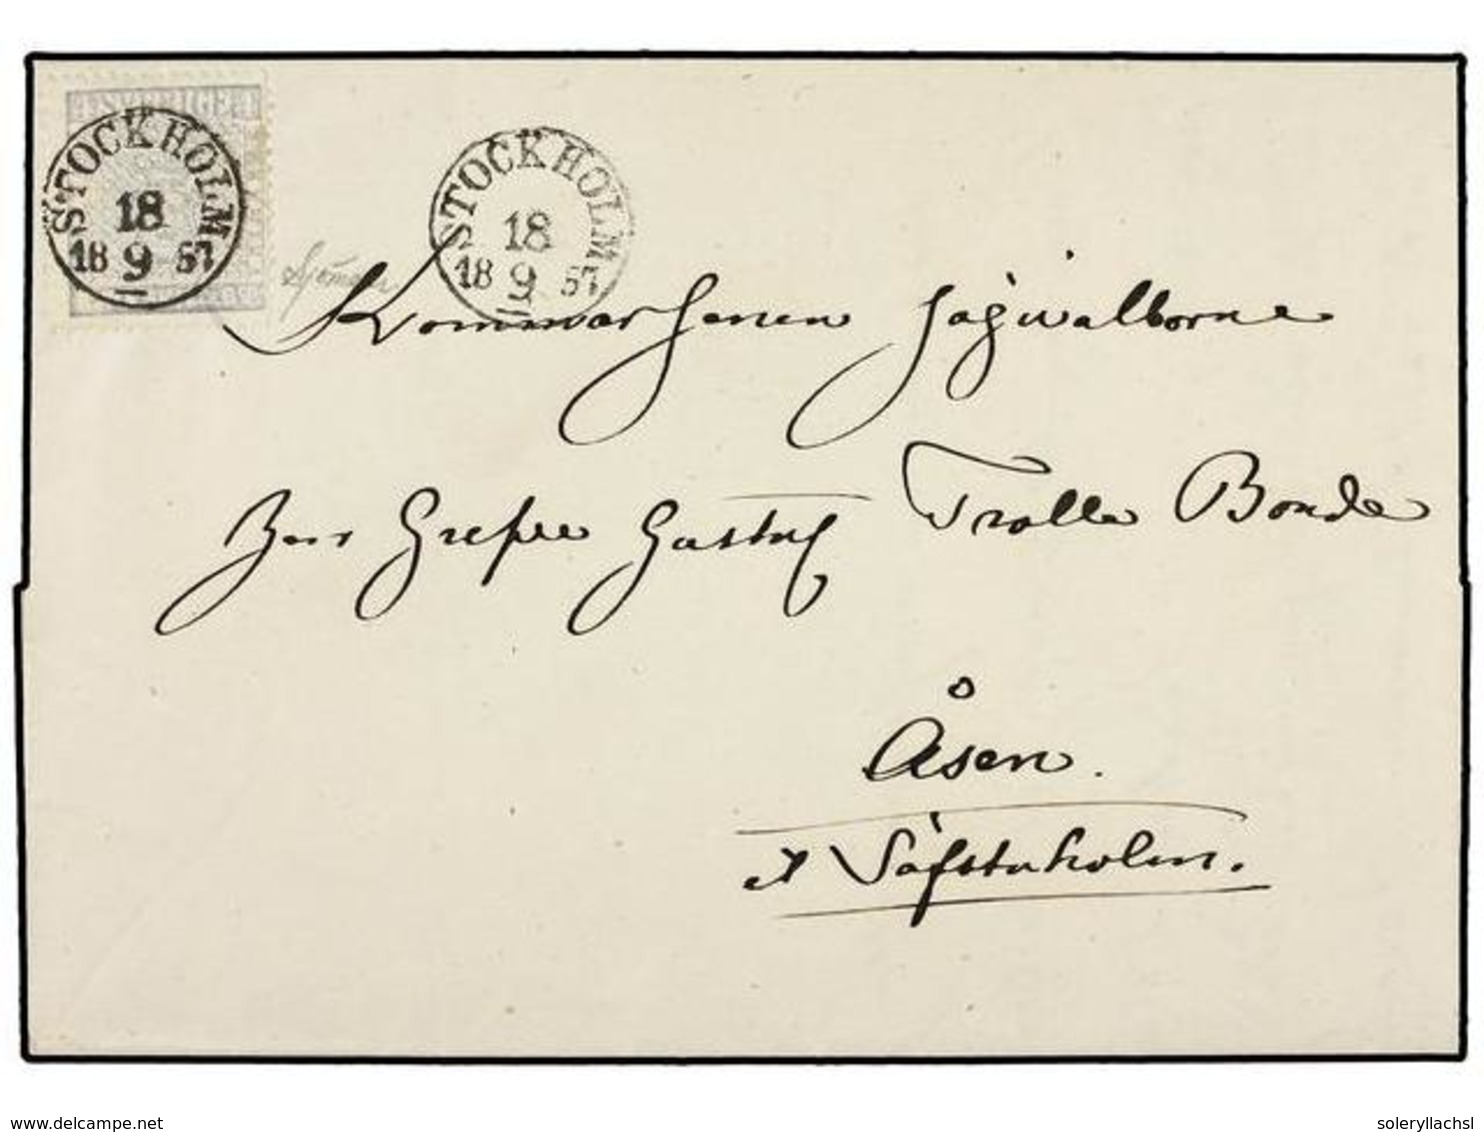 SVERIGE
STOCKHOLM
18
18 9 57
STOCKHOLM
18
18 9 57
Kammarherren
Herr Grefve Gustaf Trolle Bonde
Åsen.
Säfstaholm.
delcampe.net
soleryllachsl